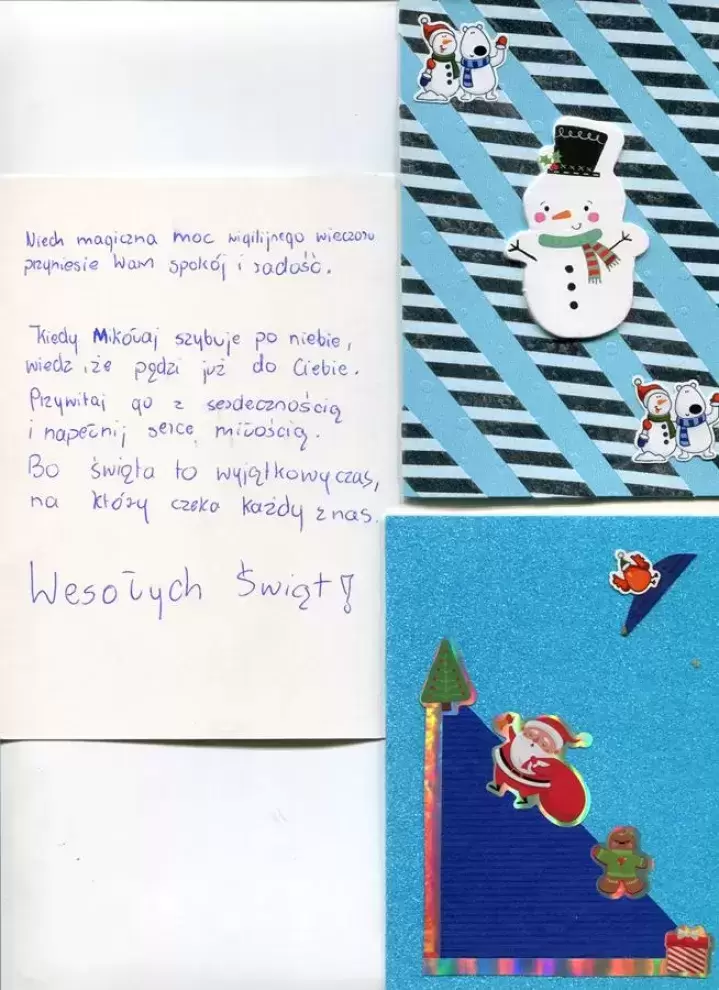 Niech magiczna moc wigilijnego wieczoru
przyniesie Wam spokój i radość.
Kiedy Mikołaj szybuje po niebie,
wiedz, że pędzi już do Ciebie.
Przywitaj go z serdecznością
i napełnij serce miłością.
Bo święta to wyjątkowy czas,
na który czeka każdy z nas.
Wesołych Świąt!